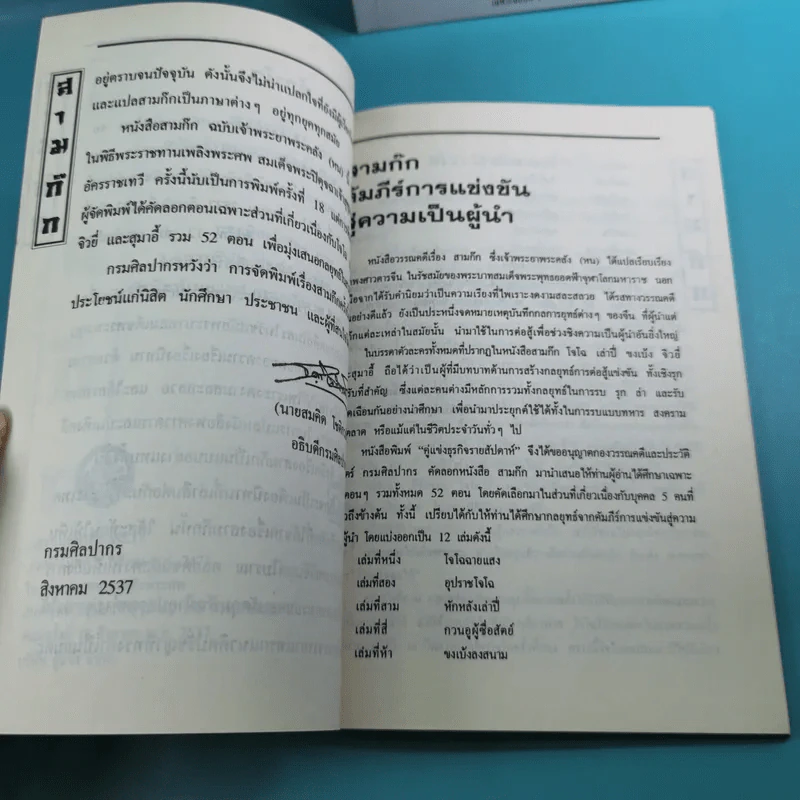 สามก๊ก
อยู่ตราบจนปัจจุบัน ดังนั้นจึงไม่น่าแปลกใจที่ยังมีผู้
และแปลสามก๊กเป็นภาษาต่างๆ อยู่ทุกยุคทุกสมัย
หนังสือสามก๊ก ฉบับเจ้าพระยาพระคลัง (หน)
ในพิธีพระราชทานเพลิงพระศพ สมเด็จพระปิตุจฉาเจ้า
อัครราชเทวี ครั้งนี้นับเป็นการพิมพ์ครั้งที่ 18
ผู้จัดพิมพ์ได้คัดลอกตอนเฉพาะส่วนที่เกี่ยวเนื่องกับ
จิวยี่ และสุมาอี้ รวม 52 ตอน เพื่อมุ่งเสนอกลยุทธ์
กรมศิลปากรหวังว่า การจัดพิมพ์เรื่องสามก๊ก
ประโยชน์แก่นิสิต นักศึกษา ประชาชน และผู้ที่สนใจ
(นายสมคิด โชติ
อธิบดีกรมศิลป
กรมศิลปากร
สิงหาคม 2537
สามก๊ก
คัมภีร์การแข่งขัน
สู่ความเป็นผู้นำ
หนังสือวรรณคดีเรื่อง สามก๊ก ซึ่งเจ้าพระยาพระคลัง (หน) ได้แปลเรียบเรียง
พงศาวดารจีน ในรัชสมัยของพระบาทสมเด็จพระพุทธยอดฟ้าจุฬาโลกมหาราช นอก
จากได้รับคำนิยมว่าเป็นความเรียงที่ไพเราะงดงามสละสลวย ได้รสทางวรรณคดี
อย่างดีแล้ว ยังเป็นประหนึ่งจดหมายเหตุบันทึกกลการยุทธ์ต่างๆ ของจีน ที่ผู้นำแต่
ก๊กแต่ละเหล่าในสมัยนั้น นำมาใช้ในการต่อสู้เพื่อช่วงชิงความเป็นผู้นำอันยิ่งใหญ่
ในบรรดาตัวละครทั้งหมดที่ปรากฏในหนังสือสามก๊ก โจโฉ เล่าปี่ ขงเบ้ง จิวยี่
ะสุมาอี้ ถือได้ว่าเป็นผู้ที่มีบทบาทด้านการสร้างกลยุทธ์การต่อสู้แข่งขัน ทั้งเชิงรุก
รับที่สำคัญ ซึ่งแต่ละคนต่างมีหลักการรวมทั้งกลยุทธ์ในการรบ รุก ล่า และรับ
เฉือนกันอย่างน่าศึกษา เพื่อนำมาประยุกต์ใช้ได้ทั้งในการรบแบบทหาร สงคราม
ตลาด หรือแม้แต่ในชีวิตประจำวันทั่วๆ ไป
หนังสือพิมพ์ "คู่แข่งธุรกิจรายสัปดาห์" จึงได้ขออนุญาตกองวรรณคดีและประวัติ
ตร์ กรมศิลปากร คัดลอกหนังสือ สามก๊ก มานำเสนอให้ท่านผู้อ่านได้ศึกษาเฉพาะ
ตอนๆ รวมทั้งหมด 52 ตอน โดยคัดเลือกมาในส่วนที่เกี่ยวเนื่องกับบุคคล 5 คนที่
วถึงข้างต้น ทั้งนี้ เปรียบได้กับให้ท่านได้ศึกษากลยุทธ์จากคัมภีร์การแข่งขันสู่ความ
ผู้นำ โดยแบ่งออกเป็น 12 เล่มดังนี้
เล่มที่หนึ่ง โจโฉฉายแสง
เล่มที่สอง อุปราชโจโฉ
เล่มที่สาม หักหลังเล่าปี่
เล่มที่สี่ กวนอูผู้ซื่อสัตย์
เล่มที่ห้า ขงเบ้งลงสนาม